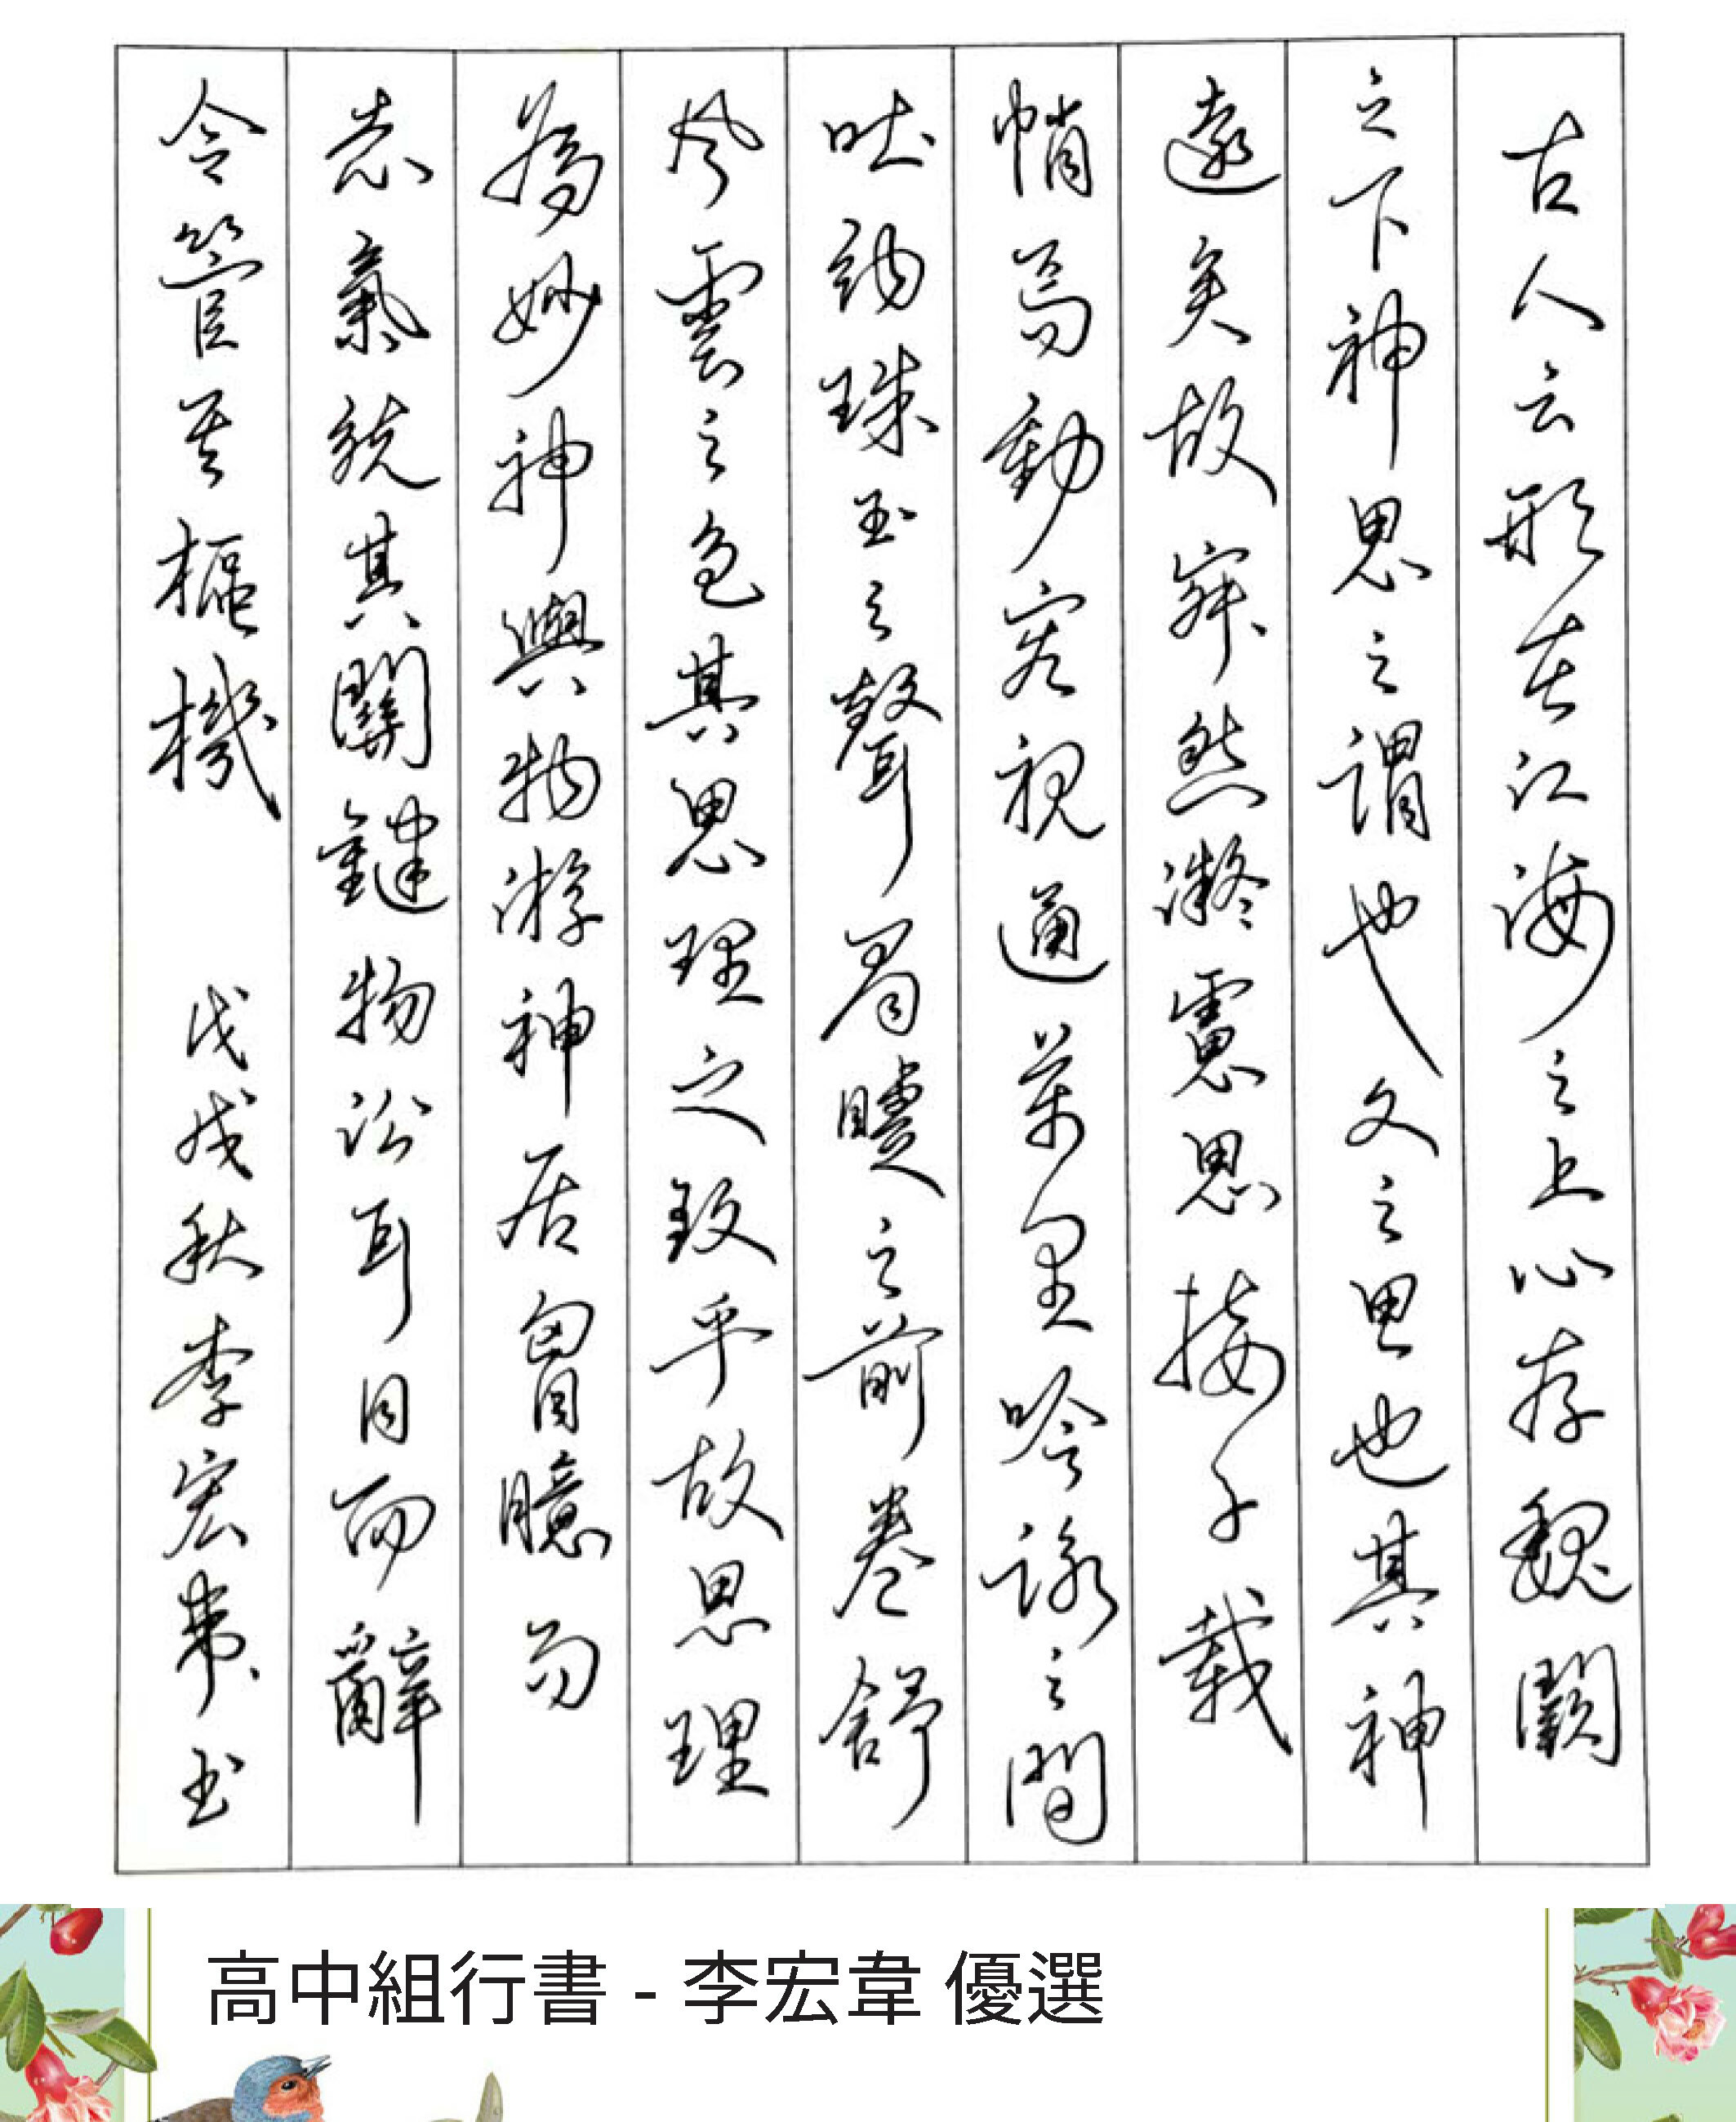 古人云形在江海之上心存魏闕
之下神思之謂也文之思也其神
遠矣故寂然凝慮思接千載
悄焉動容視通萬里吟詠之間
吐納珠玉之聲眉睫之前卷舒
風雲之色其思理之致乎故思理
為妙神與物游神居胷臆而
志氣統其關鍵物沿耳目而辭
令管其樞機 戊戌秋李宏韋書
高中組行書 - 李宏韋 優選